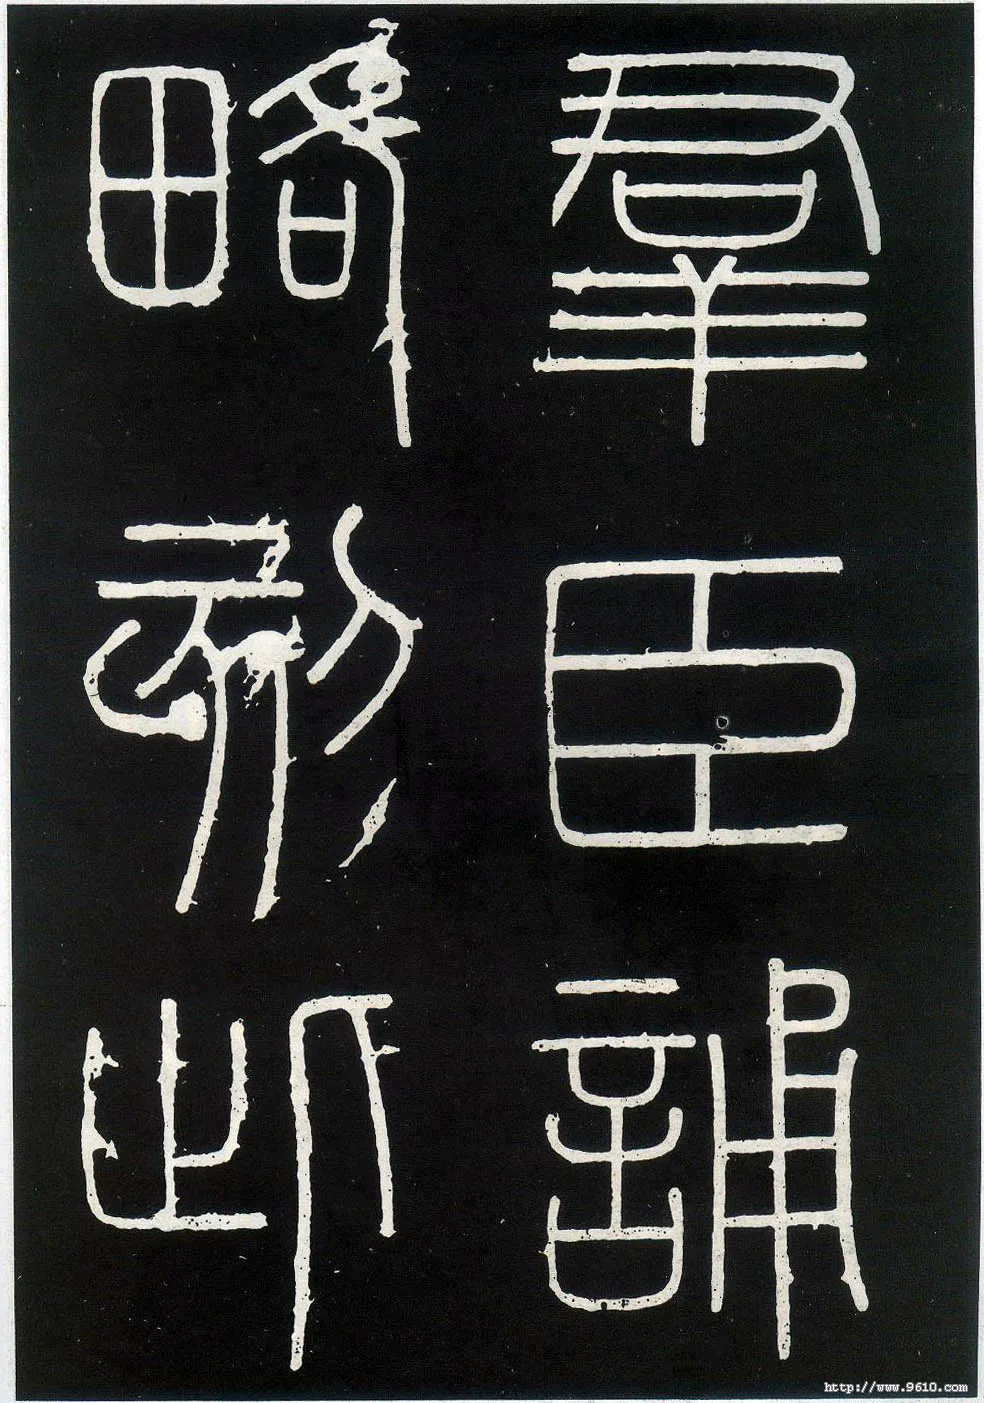 羣臣誦
略刻此
http://www.9610.com